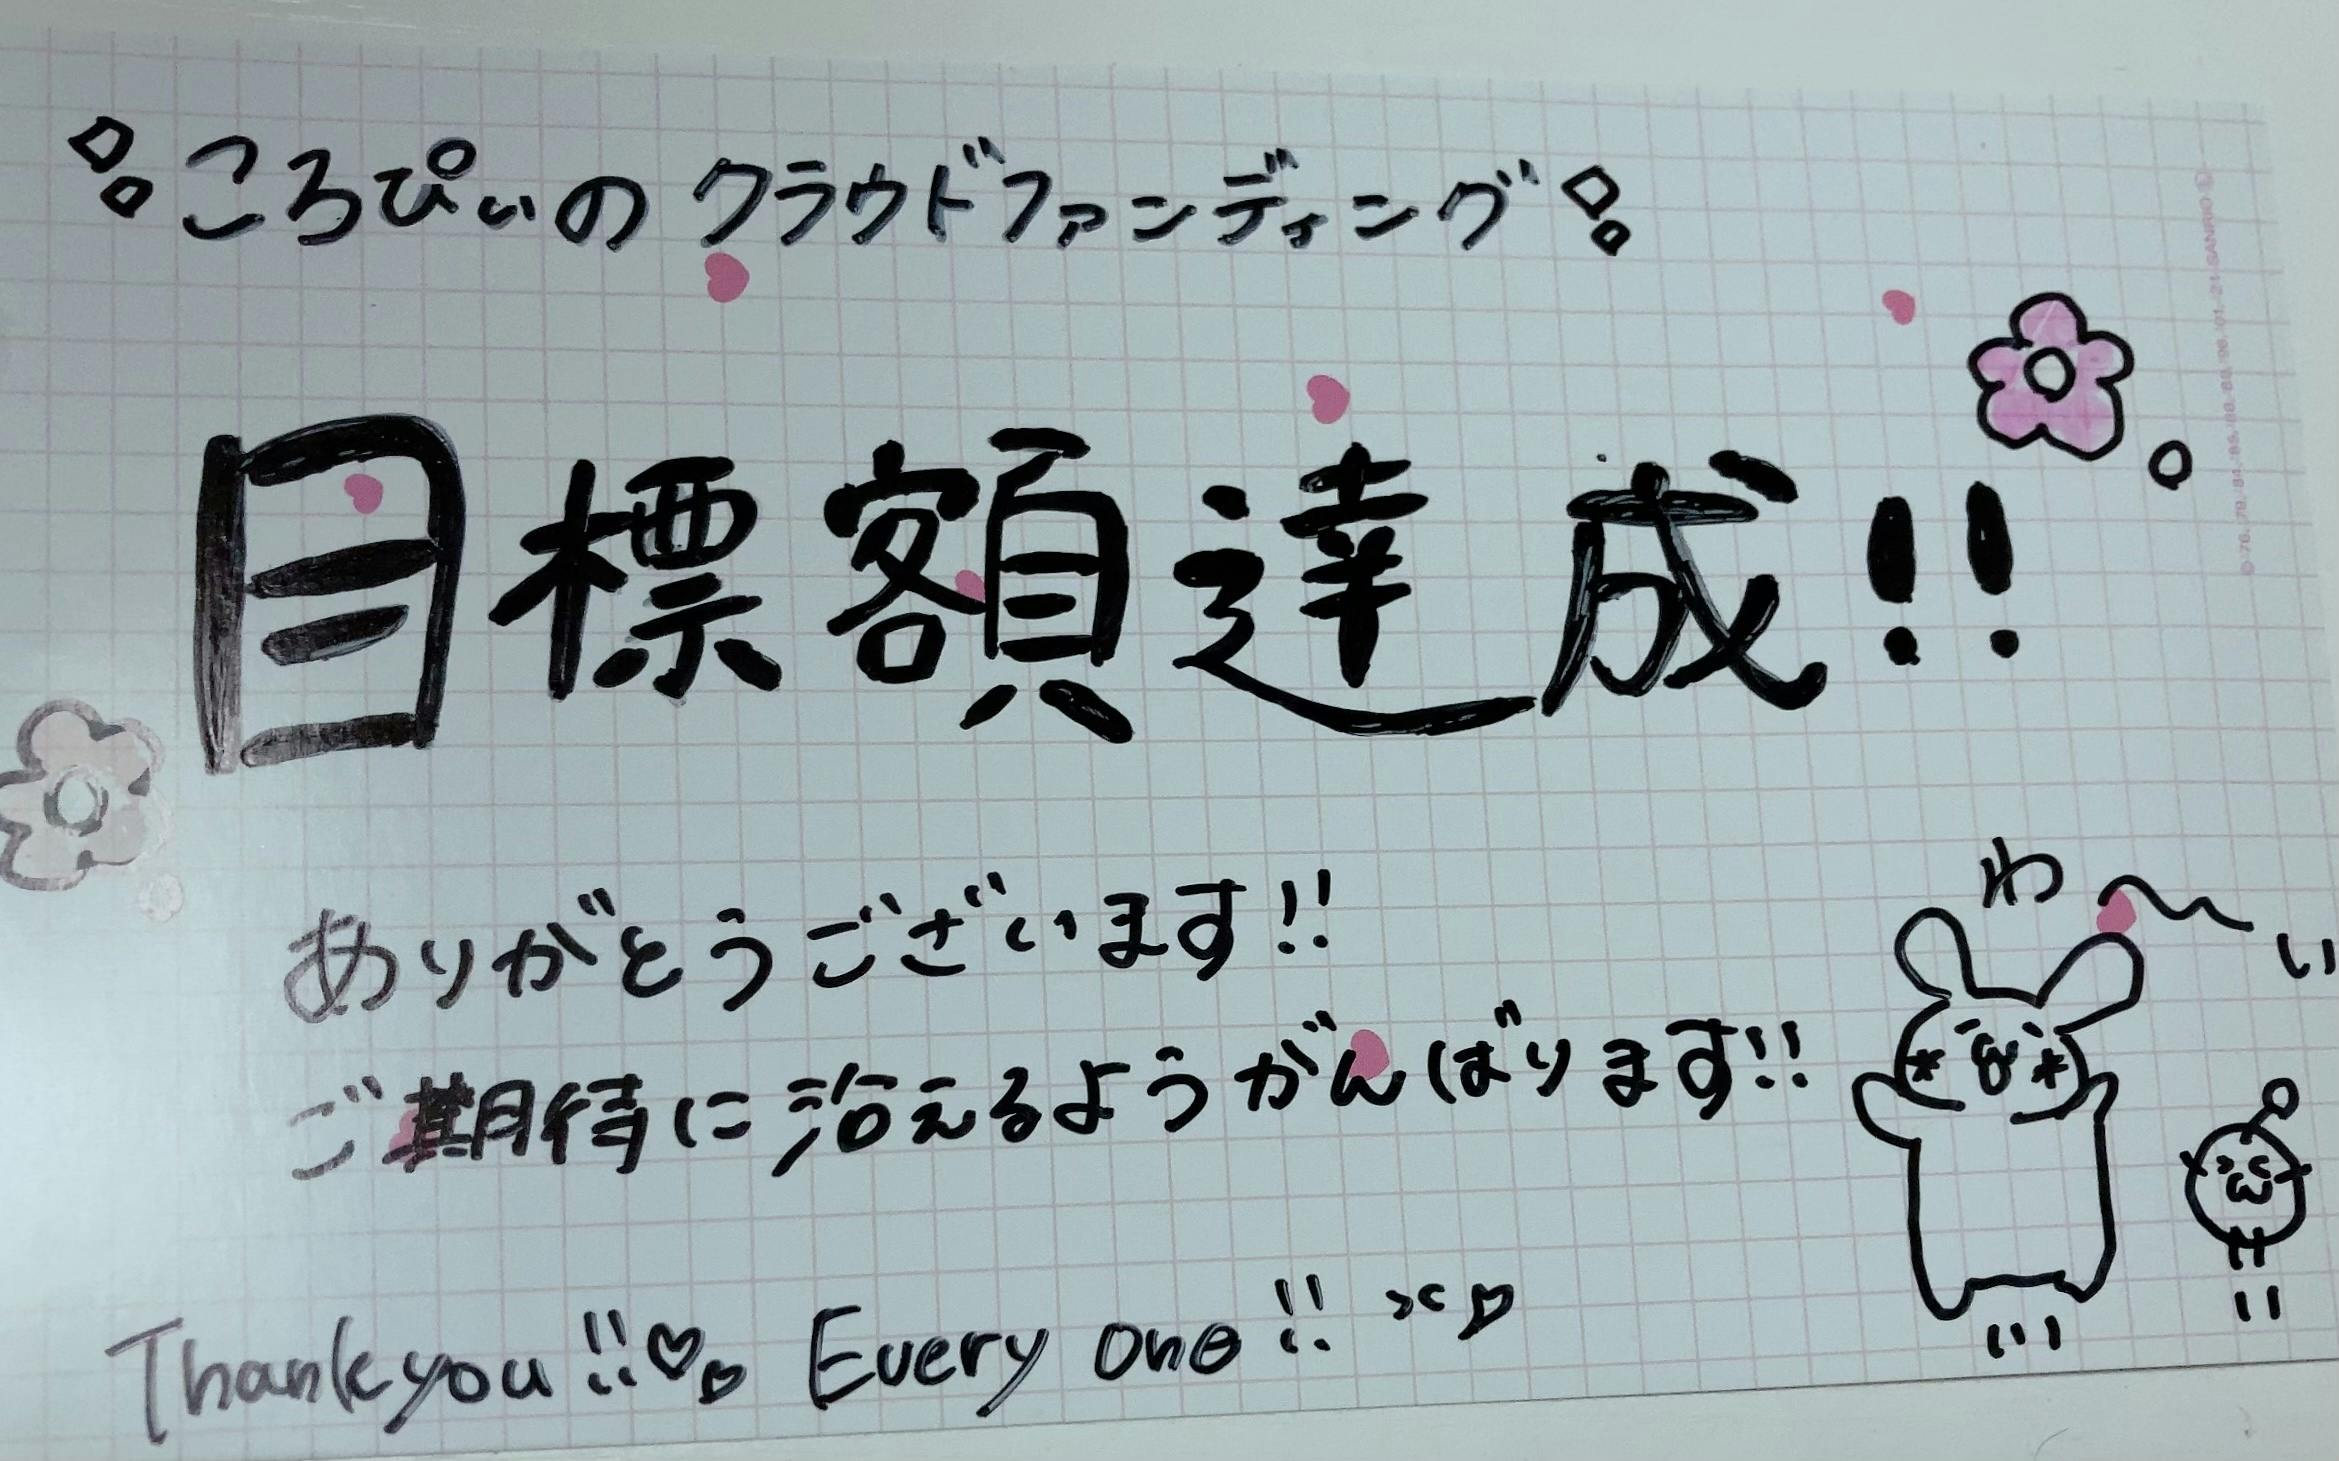 ころぴぃのクラウドファンディング
目標額達成!!
ありがとうございます!!
ご期待に沿えるようがんばります!!
わ〜い
Thank you!!♡♡ Every one!!